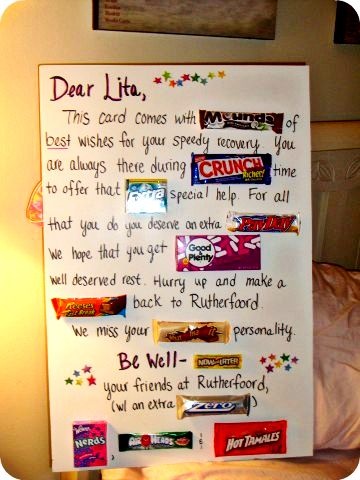 Dear Lita,
This card comes with Mounds of
best wishes for your speedy recovery. You
are always there during CRUNCH time
to offer that Extra special help. For all
that you do you deserve an extra PAYDAY
We hope that you get Good & Plenty
well deserved rest. Hurry up and make a
REESE'S Fast Break back to Rutherfoord.
We miss your personality.
Be Well- NOW and LATER
your friends at Rutherfoord,
(w/ an extra ZERO)
NERDS, AIRHEADS, HOT TAMALES